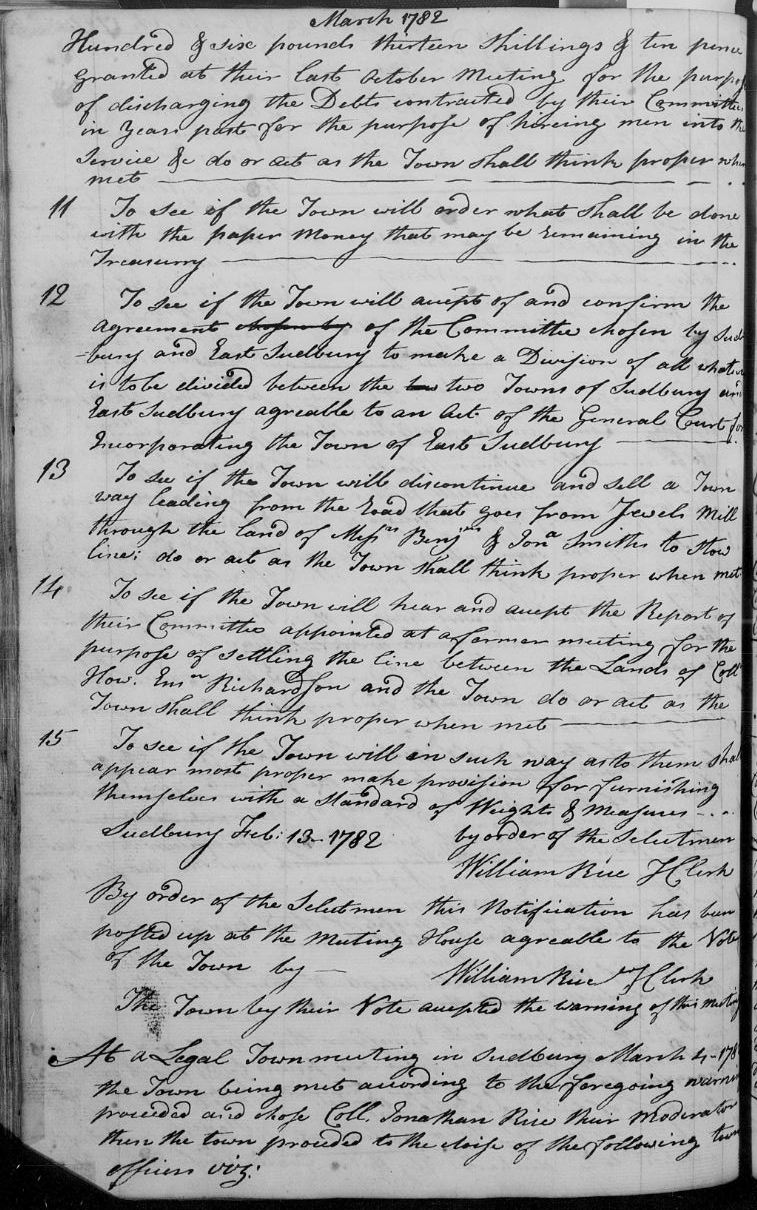 March 1782
Hundred & six pounds thirteen shillings & ten pence
granted at their last October Meeting for the purpose
of discharging the Debts contracted by their Committee
in Years past for the purpose of hireing men into the
Service &c do or act as the Town shall think proper when
met
11 To see if the Town will order what shall be done
with the paper Money that may be remaining in the
Treasurry
12 To see if the Town will accept of and confirm the
agreement chosen by of the Committee chosen by Sud-
-bury and East Sudbury to make a Division of all what
is to be divided between the two Towns of Sudbury and
East Sudbury agreable to an Act of the General Court for
Incorporating the Town of East Sudbury
13 To see if the Town will discontinue and sell a Town
way leading from the road that goes from Jewels Mill
through the land of Messrs Benjn & Jona Smiths to Stow
line; do or act as the Town shall think proper when met
14 To see if the Town will hear and accept the Report of
their Committee appointed at a former meeting for the
purpose of settling the line between the Lands of Coll
How. Ensn Richardson and the Town do or act as the
Town shall think proper when met
15 To see if the Town will in such way as to them shall
appear most proper make provision for furnishing
themselves with a Standard of Weights & Measures
Sudbury Feb: 13-1782 by order of the Selectmen
William Rice T Clerk
By order of the Selectmen this Notification has been
posted up at the Meeting House agreable to the Vote
of the Town by — William Rice T Clerk
The Town by their Vote accepted the warning of this meeting
At a Legal Town meeting in Sudbury March 4-178
the Town being met according to the foregoing warning
proceeded and chose Coll. Jonathan Rice their Moderator
then the town proceeded to the choise of the following town
officers viz: